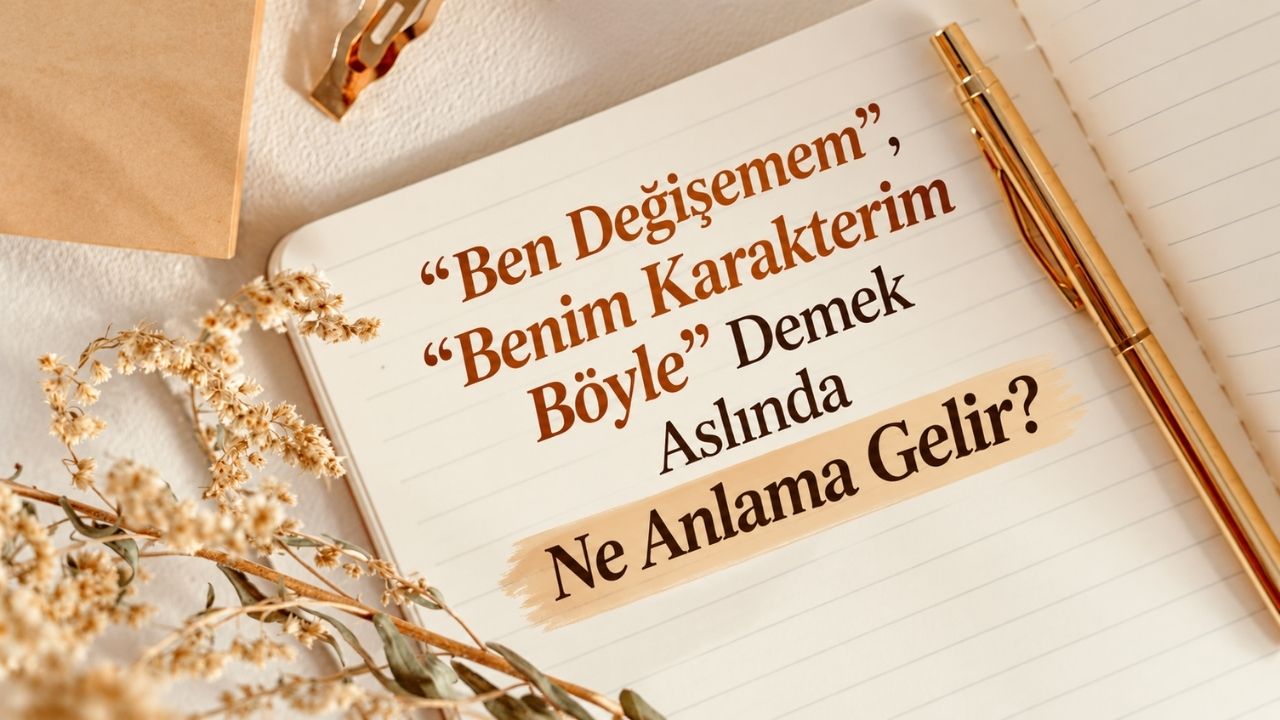 “Ben Değişemem”,
“Benim Karakterim
Böyle” Demek
Aslında
Ne Anlama Gelir?